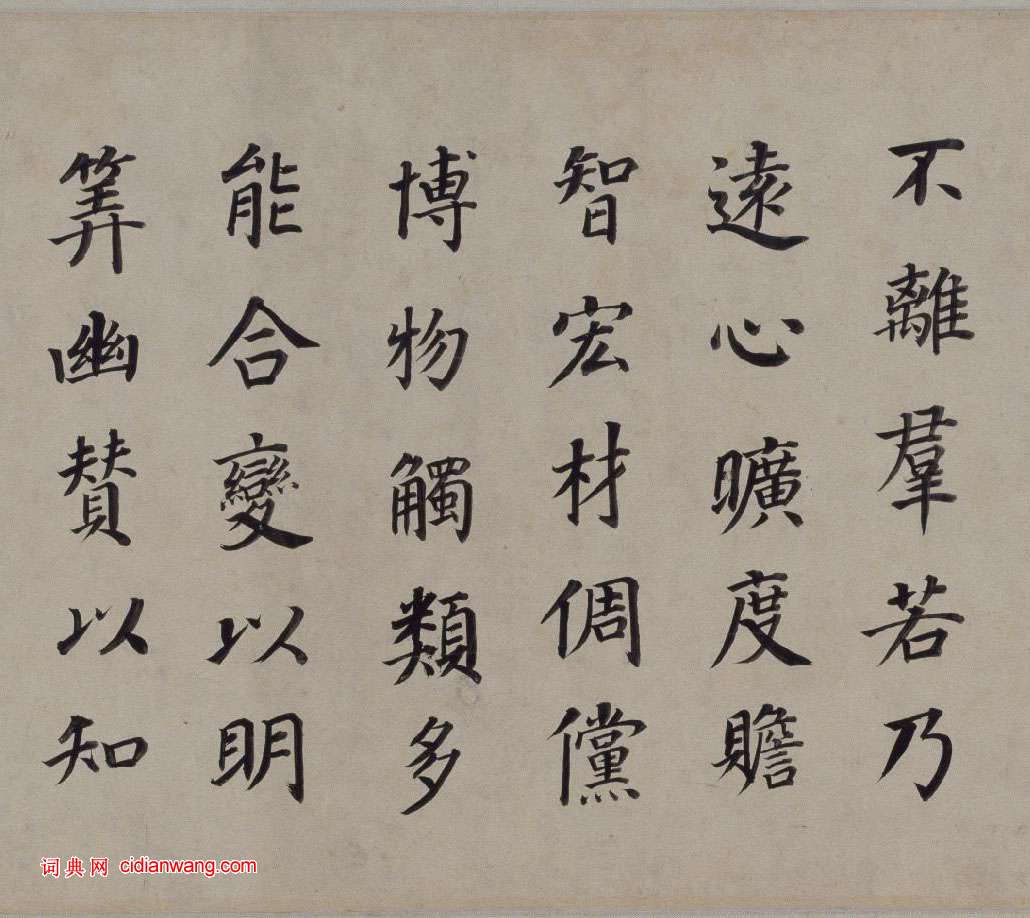 不離羣若乃
遠心曠度贍
智宏材倜儻
博物觸類多
能合變以明
筭幽贊以知
词典网 cidianwang.com